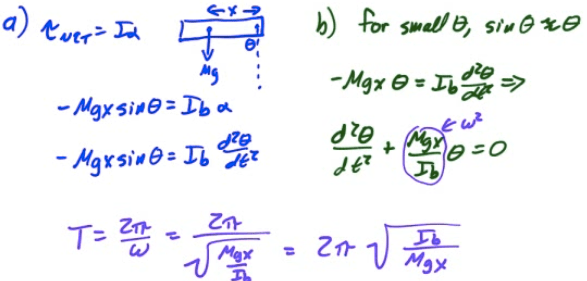 a) τ_NET = Iα
x
θ
Mg
-Mgx sin θ = I_b α
-Mgx sin θ = I_b d²θ/dt²
b) for small θ, sin θ ≈ θ
-Mgx θ = I_b d²θ/dt² ⇒
d²θ/dt² + (Mgx/I_b) θ = 0 ← ω²
T = 2π/ω = 2π/√(Mgx/I_b) = 2π √(I_b/Mgx)